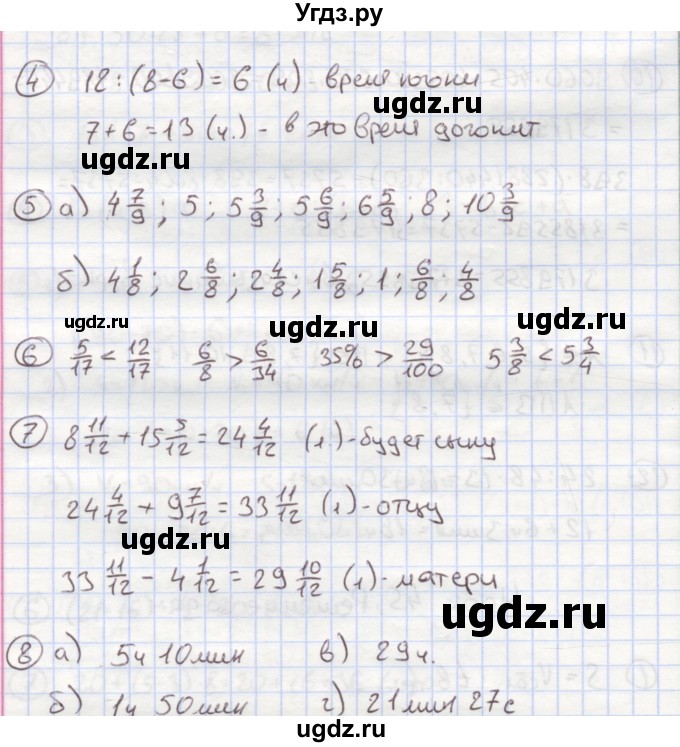 Угдз.ру
④ 12 : (8-6) = 6 (ч) - время погони
ugdz.ru
7 + 6 = 13 (ч.) - в это время догонит
ugdz.ru
⑤ а) 4 7/9 ; 5 ; 5 3/9 ; 5 6/9 ; 6 5/9 ; 8 ; 10 3/9
ugdz.ru
б) 4 1/8 ; 2 6/8 ; 2 4/8 ; 1 5/8 ; 1 ; 6/8 ; 4/8
ugdz.ru ugdz.ru
⑥ 5/17 < 12/17 6/8 > 6/34 35% > 29/100 5 3/8 < 5 3/4
ugdz.ru
⑦ 8 11/12 + 15 5/12 = 24 4/12 (л.) - будет сыну
24 4/12 + 9 7/12 = 33 11/12 (л) - отцу
ugdz.ru
33 11/12 - 4 1/12 = 29 10/12 (л) - матери
ugdz.ru
⑧ а) 5ч 10мин в) 29ч.
ugdz.ru
б) 1ч 50мин г) 21мин 27с
ugdz.ru